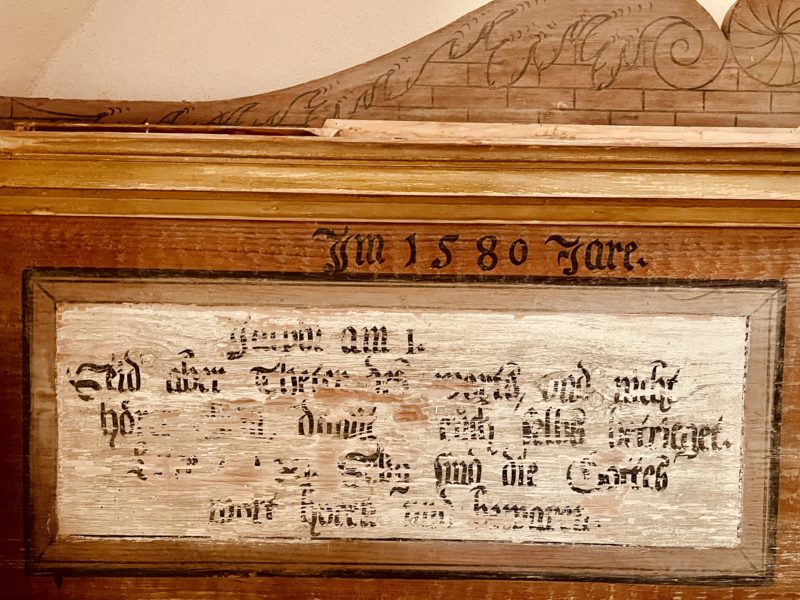 Im 1580 Jare.
am 1.
Seid aber Theter des worts, vnd nicht
damit euch selbs betrieget.
Selig sind die Gottes
wort hören vnd bewaren.